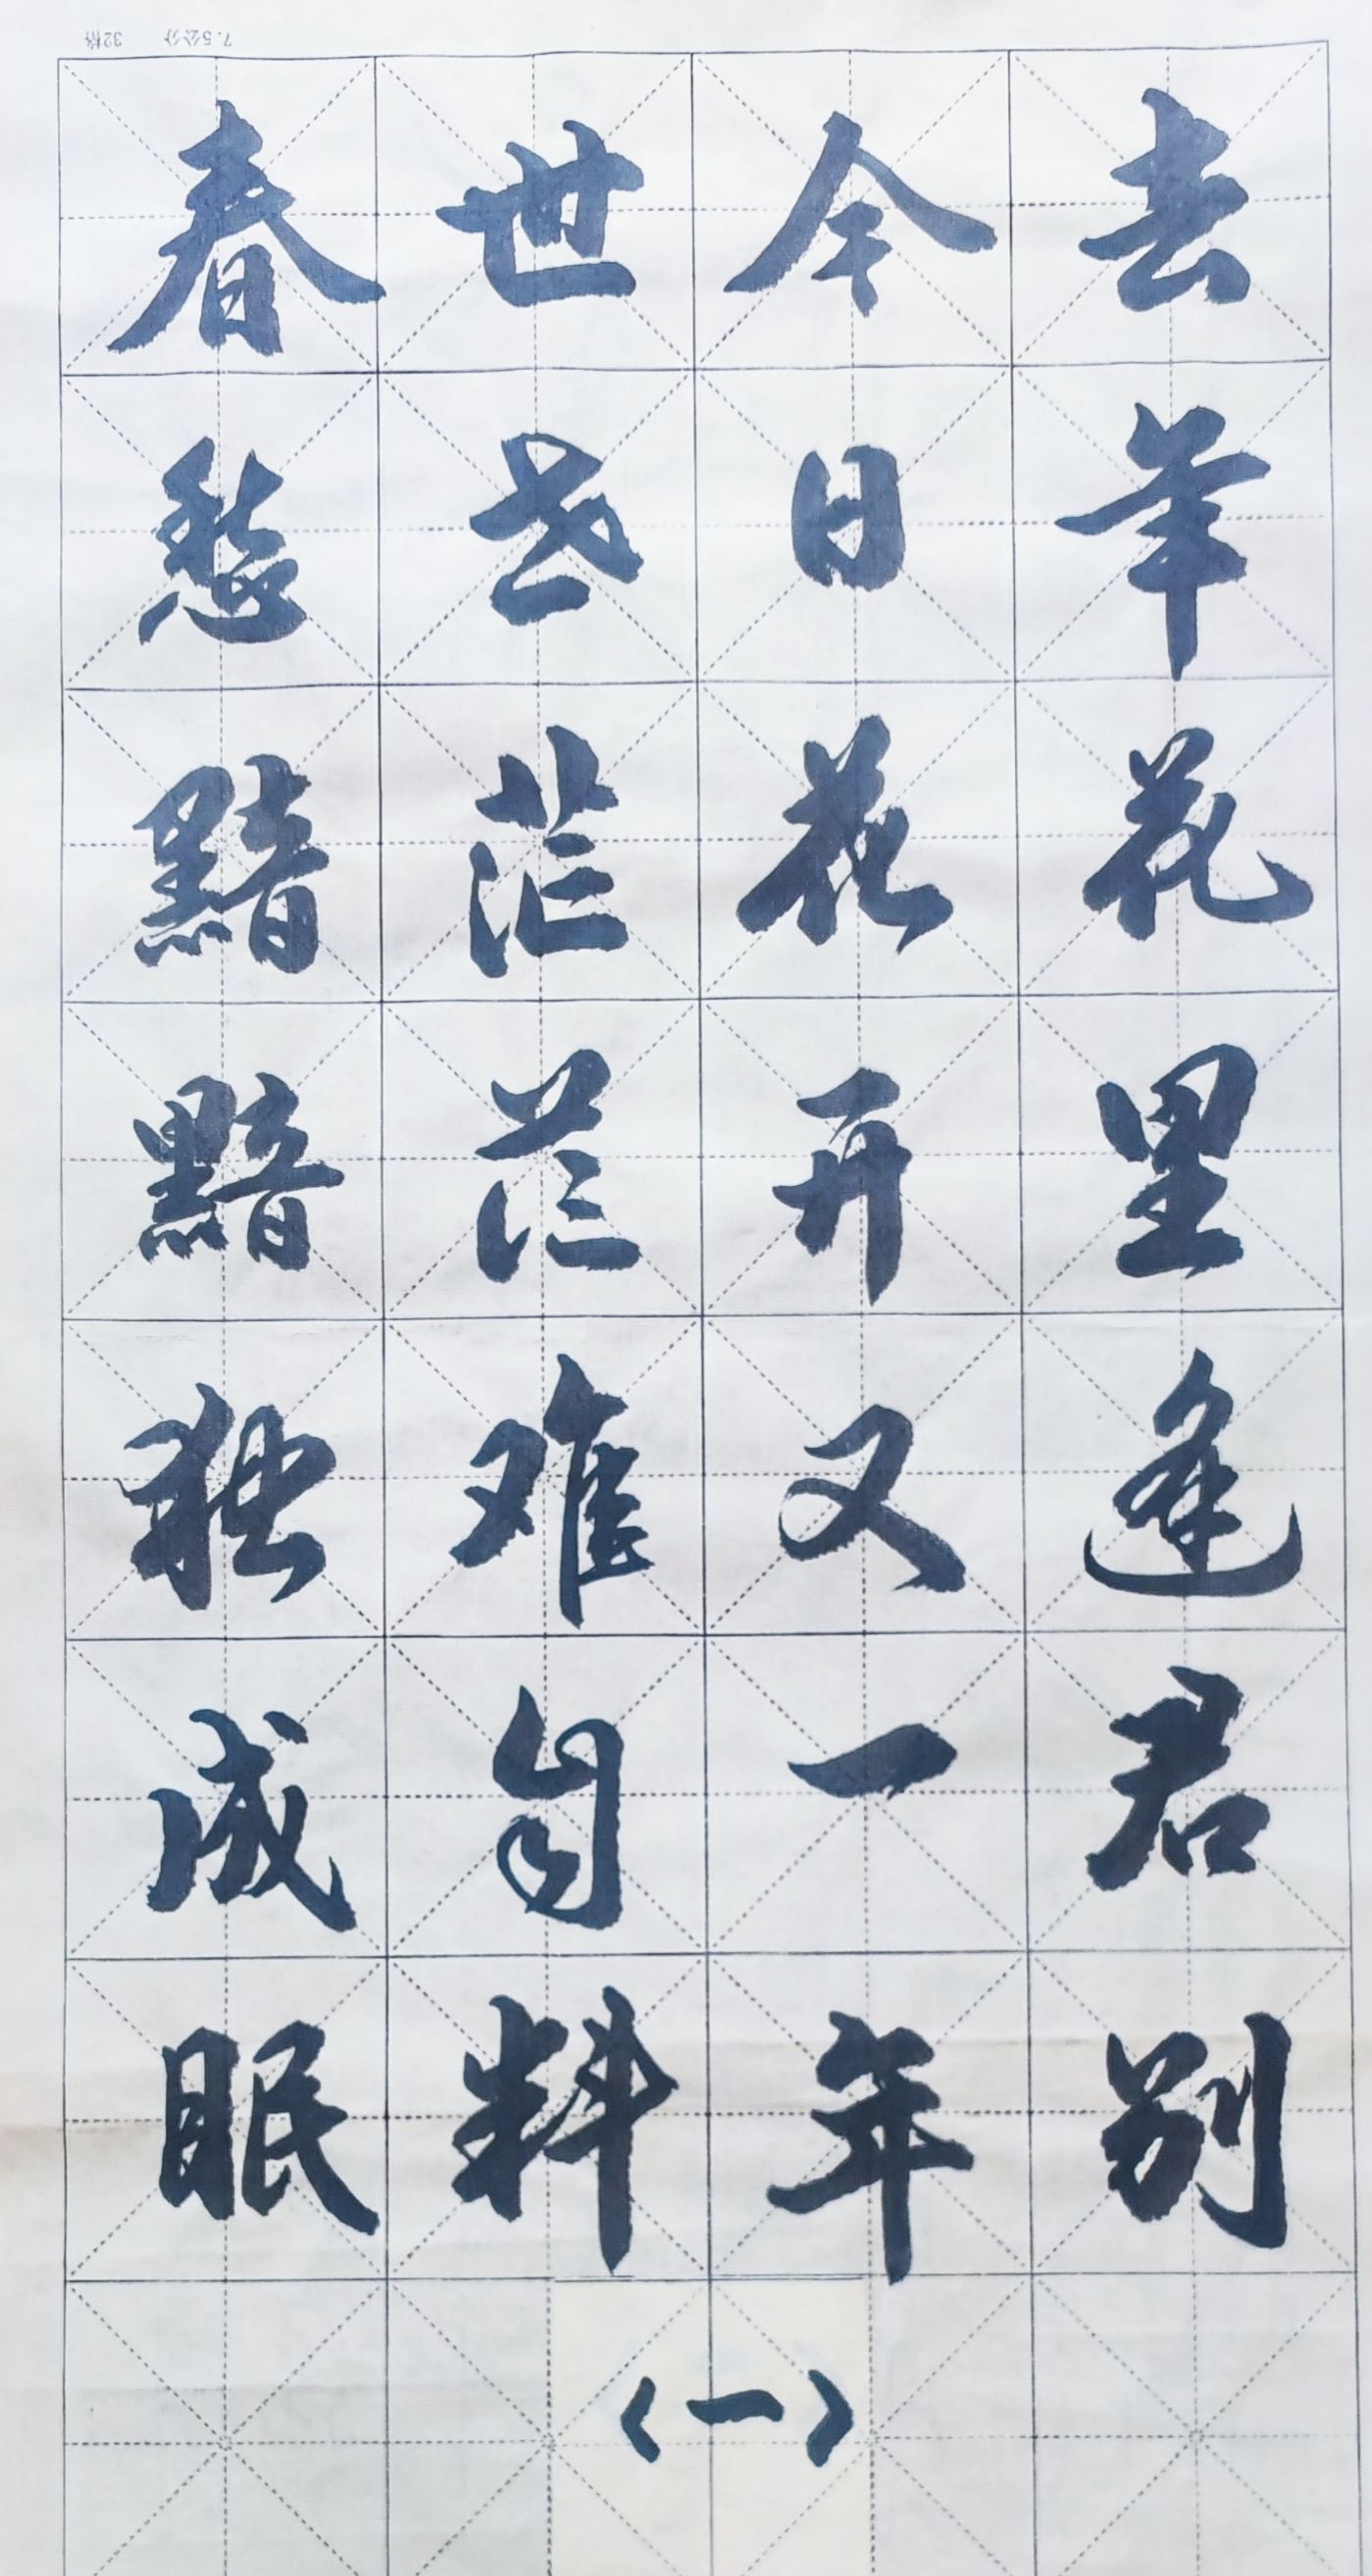 7.5公分 32格
去年花里逢君别
今日花开又一年
世事茫茫难自料
春愁黯黯独成眠
（一）